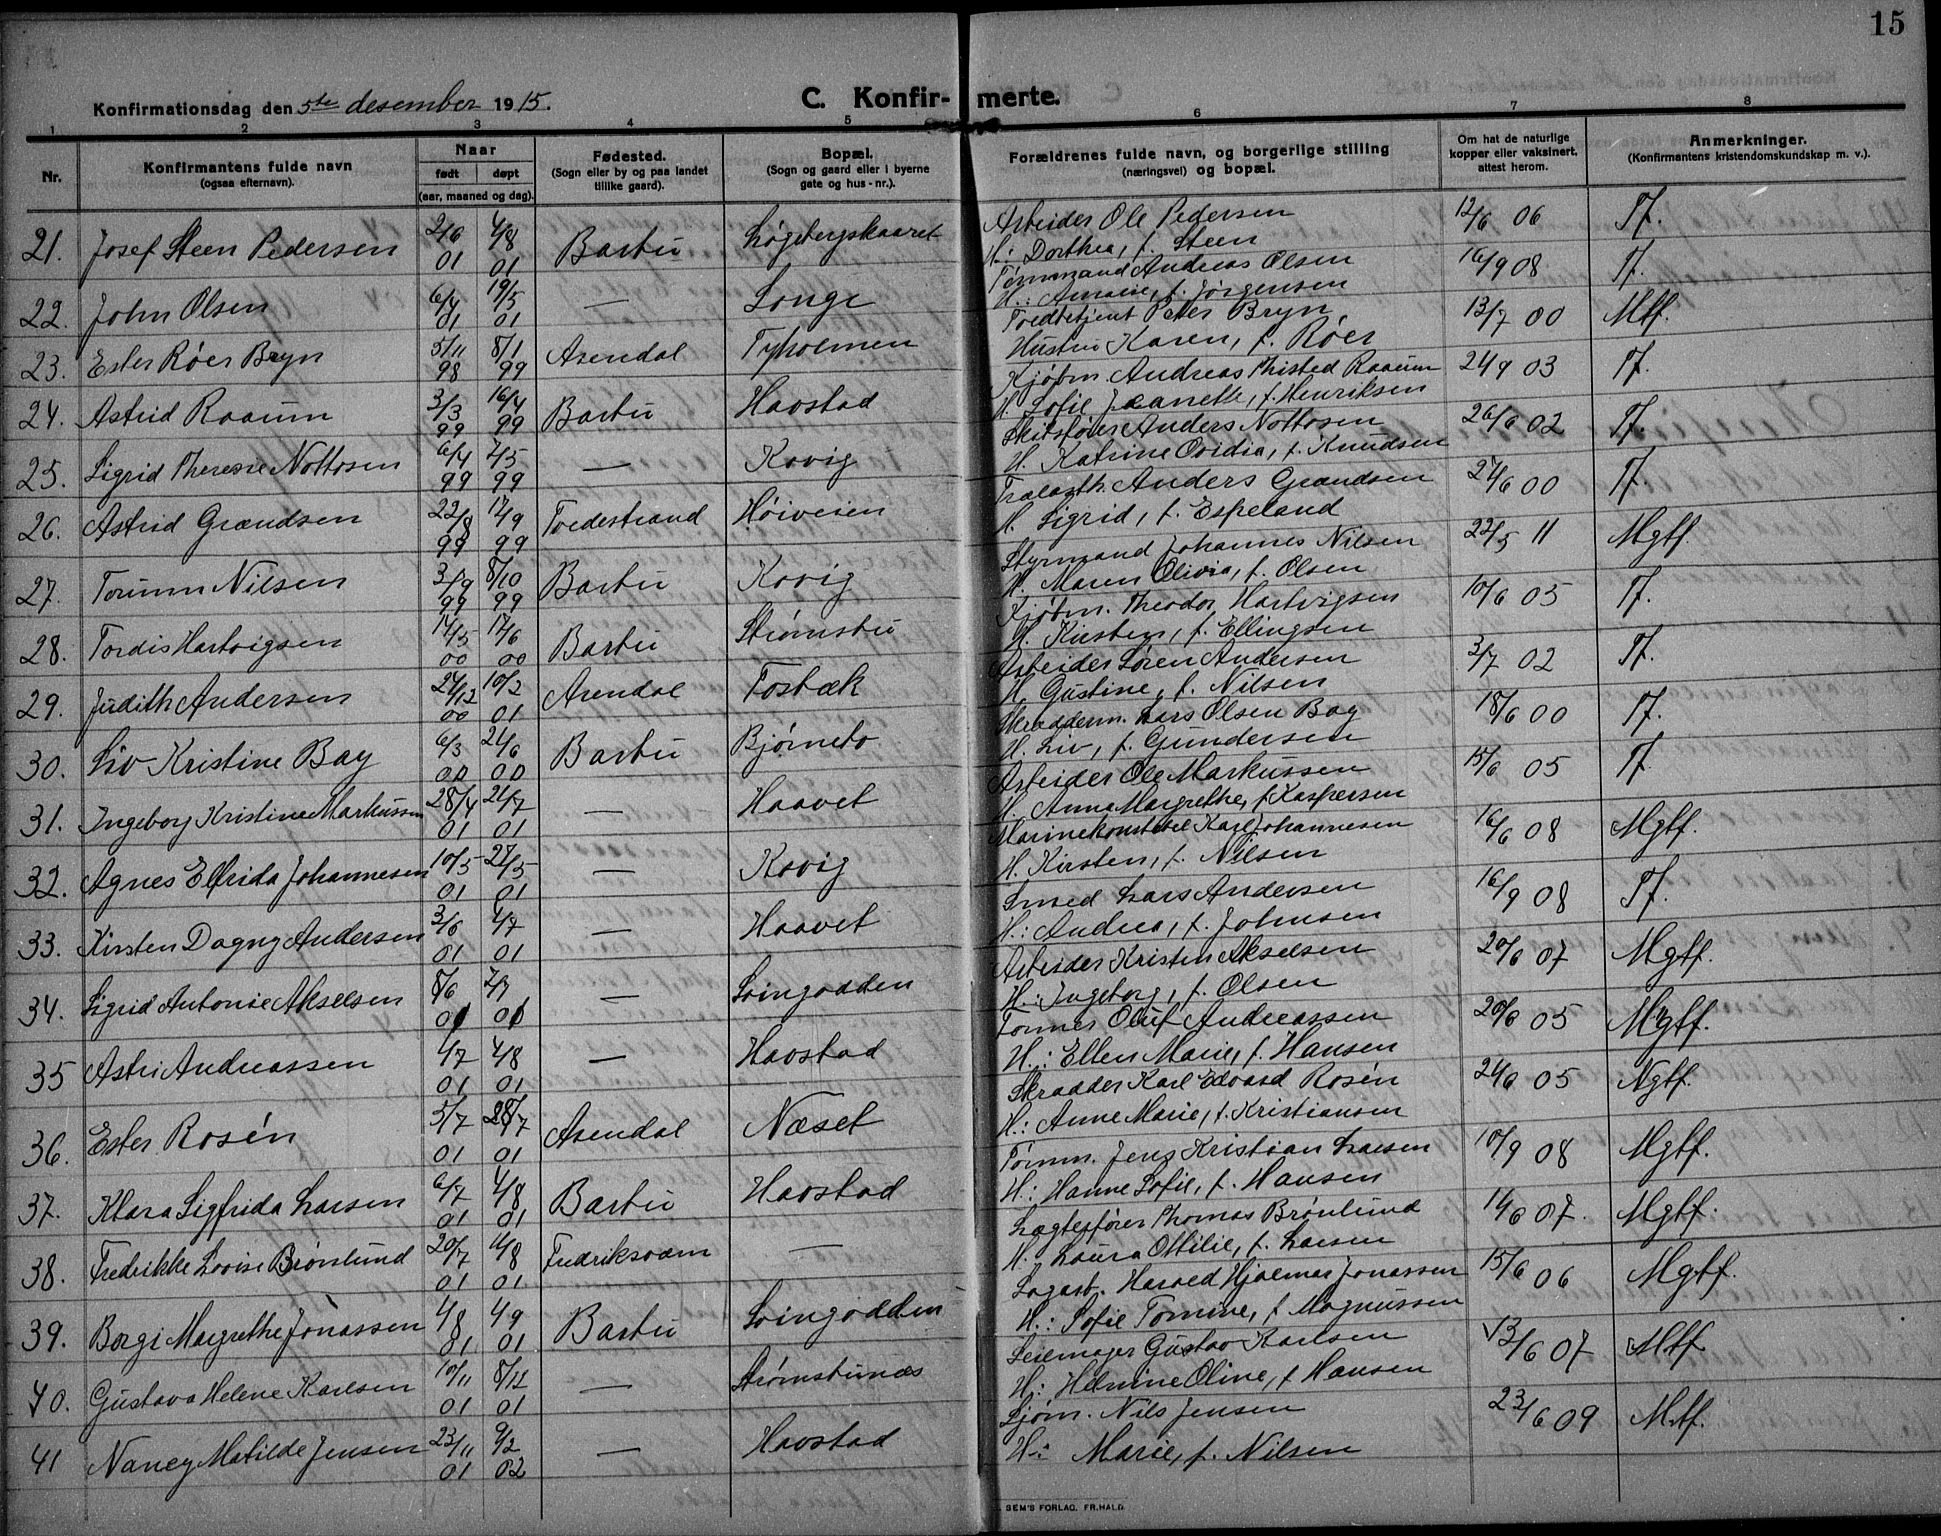 15
Konfirmationsdag den 5te desember 1915.
C. Konfir- merte.
1 2 3 4 5 6 7 8
Nr.
Konfirmantens fulde navn
(ogsaa efternavn).
Naar
født døpt
(aar, maaned og dag).
Fødested.
(Sogn eller by og paa landet
tillike gaard).
Bopæl.
(Sogn og gaard eller i byerne
gate og hus-nr.).
Forældrenes fulde navn, og borgerlige stilling
(næringsvei) og bopæl.
Om hat de naturlige
kopper eller vaksinert,
attest herom.
Anmerkninger.
(Konfirmantens kristendomskundskap m. v.).
21. Josef Steen Pedersen 2/6 01 4/8 01 Barbu Løgebergskaaret Arbeider Ole Pedersen 12/6 06 Tf.
H.: Dorthea, f. Steen
22. John Olsen 6/4 01 19/5 01 — Songe Tømmand Andreas Olsen 16/9 08 Tf.
H.: Amalie, f. Jørgensen
23. Ester Røer Bryn 5/11 98 8/1 99 Arendal Tyholmen Toldbetjent Peter Bryn, 13/7 00 Mtf.
Hustru Karen, f. Røer
24. Astrid Raaum 3/3 99 16/4 99 Barbu Havstad Kjøbm. Andreas Thisted Raaum 24/9 03 Tf.
H. Sofie Jeanette, f. Henriksen
25. Sigrid Theresie Nottosen 6/4 99 7/5 99 — Kovig Skibsfører Anders Nottosen 26/6 02 Tf.
H. Katrine Ovidia, f. Knudsen
26. Astrid Grændsen 22/8 99 17/9 99 Tvedestrand Høiveien Anders Grændsen 27/6 00 Tf.
H. Sigrid, f. Espeland
27. Torunn Nilsen 3/9 99 8/10 99 Barbu Kovig Styrmand Johannes Nilsen 22/5 11 Mgtf.
H. Maren Olivia, f. Olsen
28. Tordis Hartvigsen 14/5 00 17/6 00 Barbu Strømsbu Kjøbm. Theodor Hartvigsen 10/6 05 Tf.
H. Kirsten, f. Ellingsen
29. Judith Andersen 27/12 00 10/2 01 Arendal Fosbæk Arbeider Søren Andersen 3/7 02 Tf.
H. Gustine, f. Nilsen
30. Liv Kristine Bay 6/3 00 24/6 00 Barbu Bjørnebo Skræddderm. Lars Olsen Bay 18/6 00 Tf.
H. Liv, f. Gundersen
31. Ingeborg Kristine Markussen 28/4 01 21/7 01 — Haavet Arbeider Ole Markussen 15/6 05 Tf.
H. Anna Margrethe, f. Kaspersen
32. Agnes Elfrida Johannesen 10/5 01 27/5 01 — Kovig Karl Johannesen 16/6 08 Mgtf.
H. Kirsten, f. Nilsen
33. Kirsten Dagny Andersen 3/6 01 4/7 01 — Haavet Smed Lars Andersen 16/9 08 Tf.
H.: Andrea, f. Johnsen
34. Sigrid Antonie Akselsen 8/6 01 7/7 01 — Svingodden Arbeider Kristen Akselsen 20/6 07 Mgtf.
H.: Ingeborg, f. Olsen
35 Astri Andreassen 4/7 01 4/8 01 — Havstad Tømmer Oluf Andreassen 20/6 05 Mgtf.
H.: Ellen Marie, f. Hansen
36. Ester Rosén 5/7 01 28/7 01 Arendal Næset Skrædder Karl Edvard Rosén 24/6 05 Ngtf.
H.: Anne Marie, f. Kristiansen
37. Klara Sigfrida Larsen 6/7 01 4/8 01 Barbu Havstad Tømm. Jens Kristian Larsen 10/9 08 Mgtf.
H.: Hanne Sofie, f. Hansen
38. Fredrikke Lovise Brønlund 20/7 01 11/8 01 Fredriksværn — Lægterfører Thomas Brønlund 14/6 07. Mgtf.
H. Laura Ottilie, f. Larsen
39. Borgi Margrethe Jonassen 4/8 01 4/9 01 Barbu Svingodden Sagarb. Harald Hjalmar Jonassen 15/6 06 Mgtf.
H.: Sofie Tomine, f. Magnussen
40. Gustava Helene Karlsen 10/11 01 8/12 01 — Strømsbunæs Seilmager Gustav Karlsen 13/6 07 Mtf
H: Helmine Oline, f. Hansen
41 Nancy Matilde Jensen 23/11 01 9/2 02 — Havstad Sjøm. Nils Jensen 23/6 09 Mtf.
H: Marie, f. Nilsen
SEM'S FORLAG. FR.HALD.